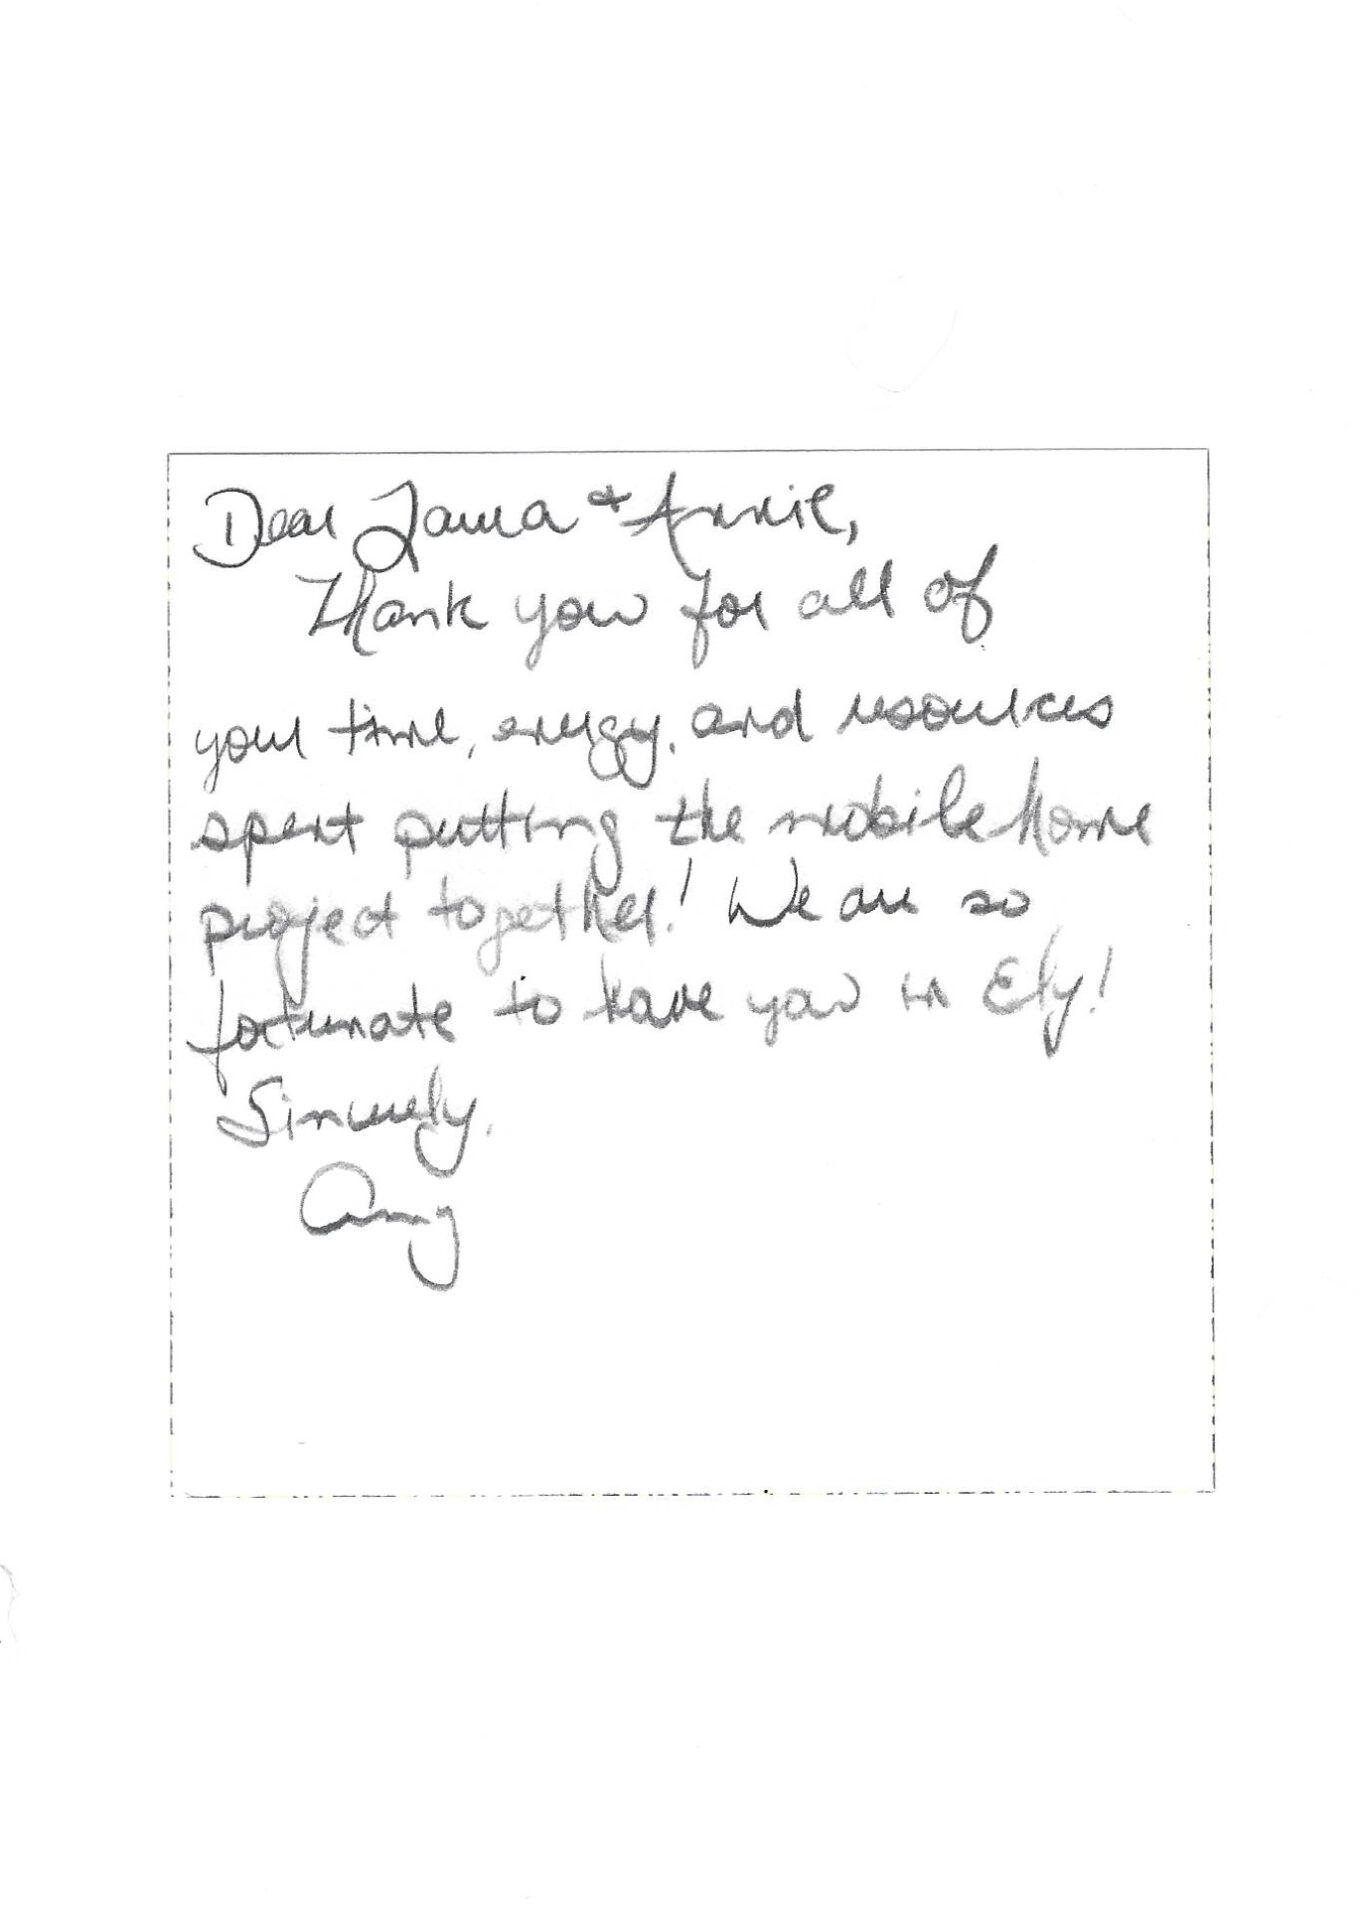 Dear Laura + Annie,
Thank you for all of
your time, energy, and resources
spent putting the mobile home
project together! We are so
fortunate to have you in Ely!
Sincerely,
Amy